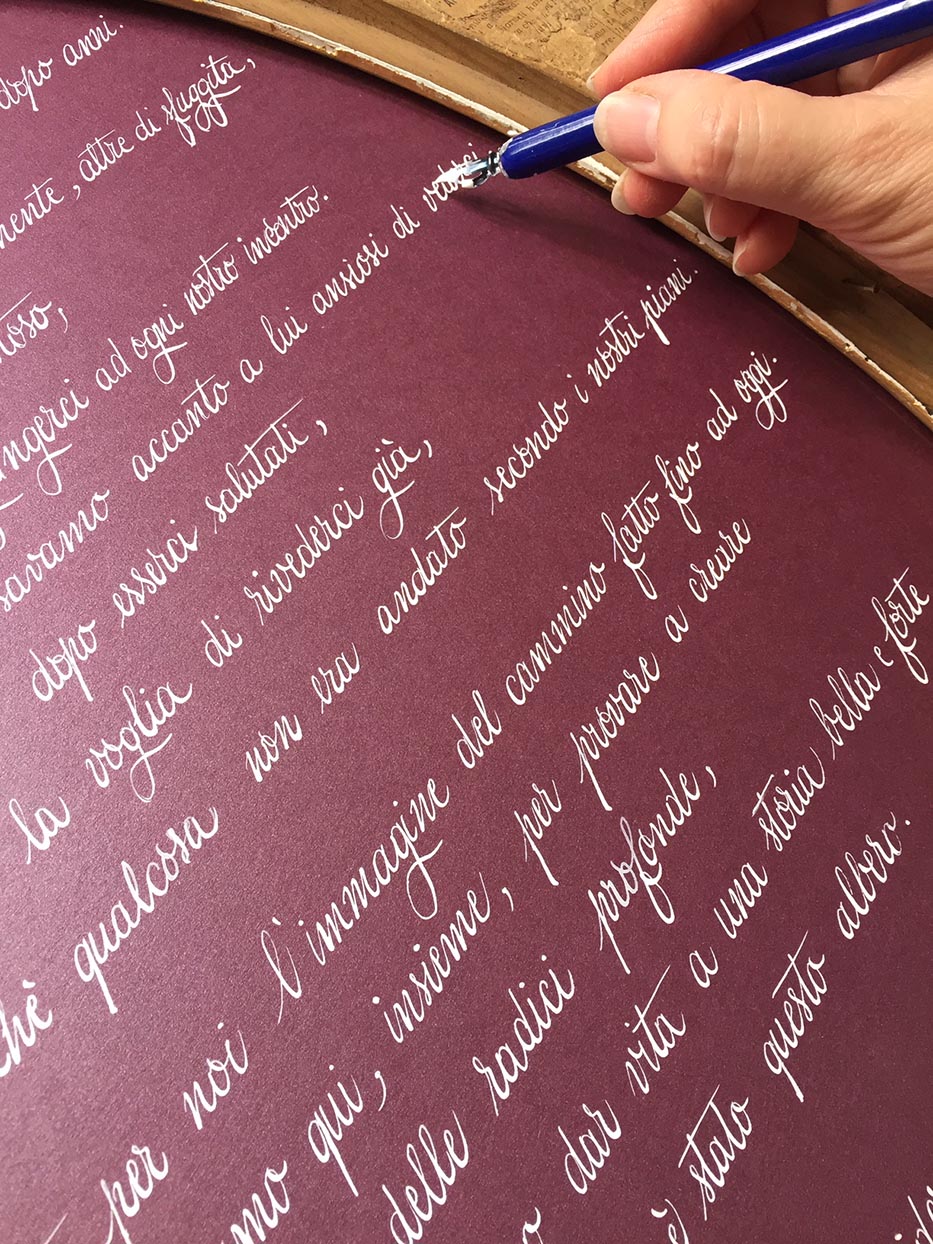 dopo anni.
mente, altre di fuggita,
toso,
ungerci ad ogni nostro incontro.
savamo accanto a lui ansiosi di
dopo esserci salutati,
la voglia di rivederci già,
chè qualcosa non era andato secondo i nostri piani.
per noi l'immagine del cammino fatto fino ad oggi.
amo qui, insieme, per provare a creare
delle radici profonde,
o dar vita a una storia bella e forte
è stato questo albero.